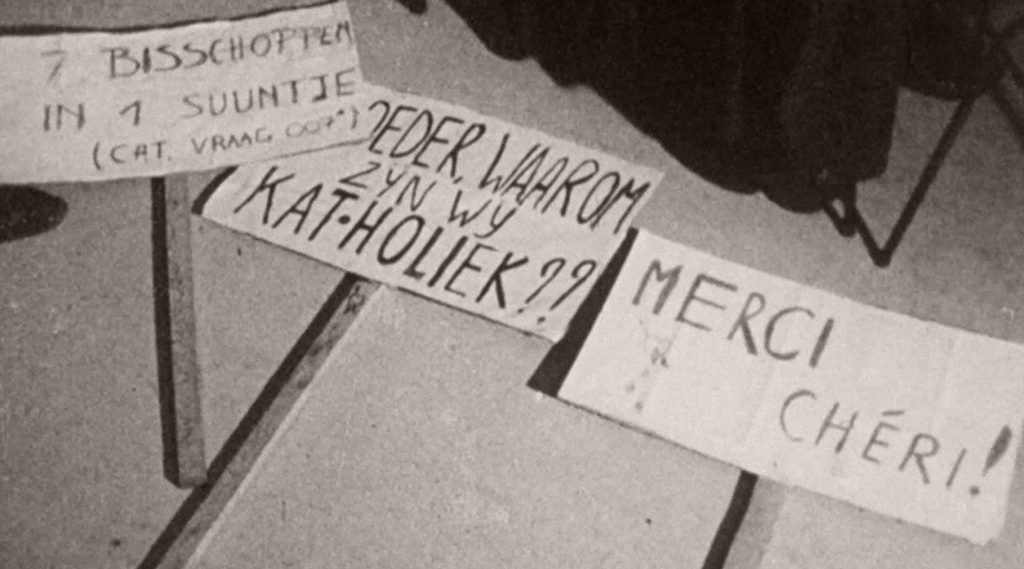 7 BISSCHOPPEN
IN 1 SUUNTJE
(CAT. VRAAG 007*)
WAAROM
ZYN WY
KAT·HOLIEK??
MERCI
CHÉRI!